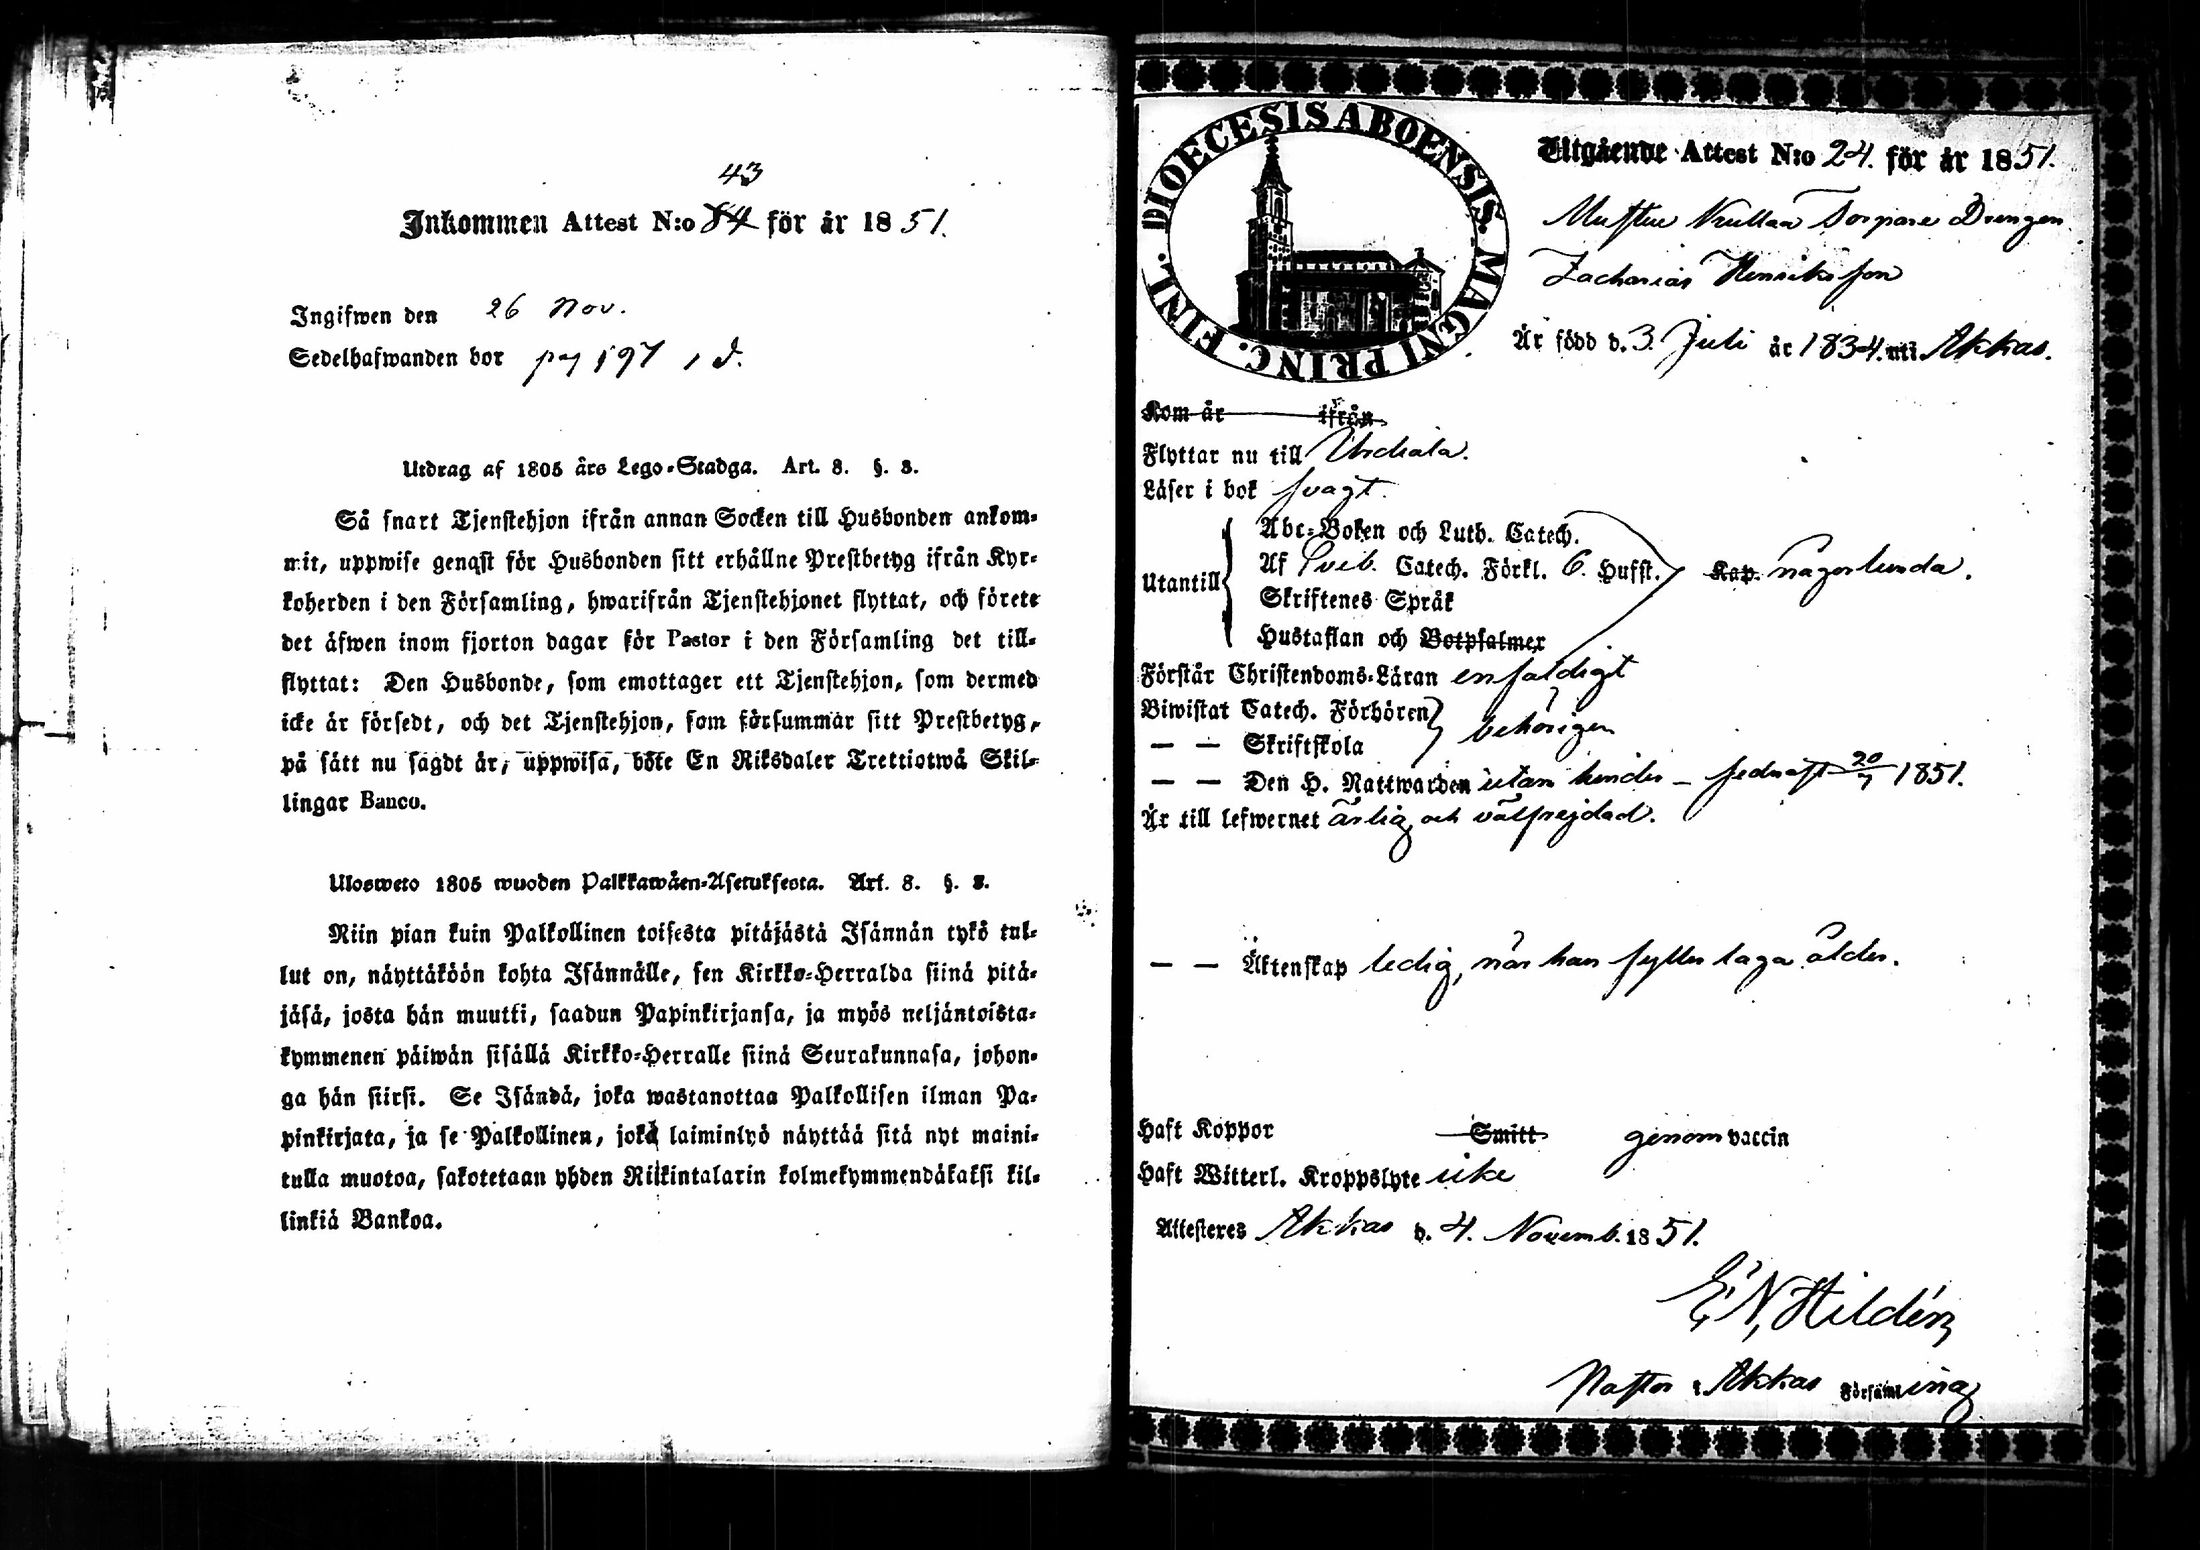 43
Inkommen Attest N:o 84 för år 1851.
Ingifwen den 26 Nov.
Sedelhafwanden bor pag 197, d.
Utdrag af 1805 års Lego-Stadga. Art. 8. §. 3.
Så snart Tjenstehjon ifrån annan Socken till Husbonden ankom-
mit, uppwise genast för Husbonden sitt erhållne Prestbetyg ifrån Kyr-
koherden i den Församling, hwarifrån Tjenstehjonet flyttat, och förete
det äfwen inom fjorton dagar för Pastor i den Församling det till-
flyttat: Den Husbonde, som emottager ett Tjenstehjon, som dermed
icke är försedt, och det Tjenstehjon, som försummar sitt Prestbetyg,
på sätt nu sagdt är, uppwisa, böte En Riksdaler Trettiotwå Skil-
lingar Banco.
Ulosweto 1805 wuoden Palkkawäen-Asetuksesta. Art. 8. §. 3.
Niin pian kuin Palkollinen toisesta pitäjästä Isännän tykö tul-
lut on, näyttäköön kohta Isännälle, sen Kirkko-Herralda siinä pitä-
jäsä, josta hän muutti, saadun Papinkirjansa, ja myös neljäntoista-
kymmenen päiwän sisällä Kirkko-Herralle siinä Seurakunnasa, johon-
ga hän siirsi. Se Isändä, joka wastanottaa Palkollisen ilman Pa-
pinkirjata, ja se Palkollinen, joka laiminlyö näyttää sitä nyt maini-
tulla muotoa, sakotetaan yhden Riikintalarin kolmekymmendäkaksi kil-
linkiä Bankoa.
DIOECESIS ABOENSIS. MAGNI PRINC. FINL.
Utgående Attest N:o 24. för år 1851.
Torpare Drengen
Zacharias Henriksson
Är född d. 3. Juli år 1834. uti Akkas.
Kom år ifrån
Flyttar nu till Urdiala.
Läser i bok svagt.
Utantill
Abc-Boken och Luth. Catech.
Af Sveb. Catech. Förkl. 6. Hufst. Kap. någorlunda.
Skriftenes Språk
Hustaflan och Botpsalmer
Förstår Christendoms-Läran enfaldigt
Biwistat Catech. Förhören
— — Skriftskola behörigen
— — Den H. Nattwarden utan hinder – sednast 20/7 1851.
Är till lefwernet ärlig och välfrejdad.
— — Äktenskap ledig, när han fyller laga ålder.
Haft Koppor Smitt genom vaccin
Haft Witterl. Kroppslyte icke
Attesteres Akkas d. 4. Novemb. 1851.
E. N. Hildén
Pastor i Akkas Församling